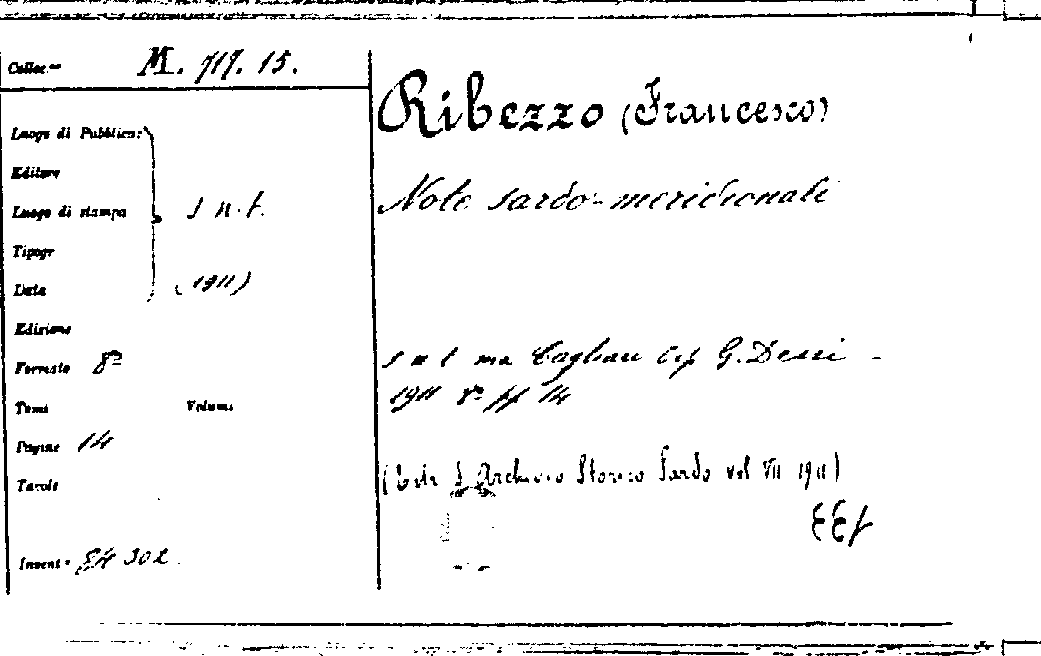 Colloc.ne M. 717. 15.
Ribezzo (Francesco)
Luogo di Pubblicaz.
Editore
Note sardo-meridionali
Luogo di stampa s. n. t.
Tipogr
Data (1911)
Edizione
Formato 8º
s n t ma Cagliari tip G. Dessì -
1911 8º pp 14
Tomi Volumi
Pagine 14
Tavole
(Estr d. Archivio Storico Sardo vol VII 1911)
Invent.